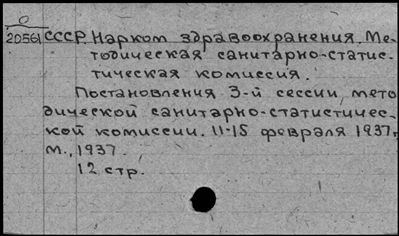 О
20561 СССР. Нарком здравоохранения. Ме-
тодическая санитарно-статис-
тическая комиссия.
Постановления 3-й сессии мето
дической санитарно-статистичес-
кой комиссии. 11-15 февраля 1937,
М., 1937.
12 стр.